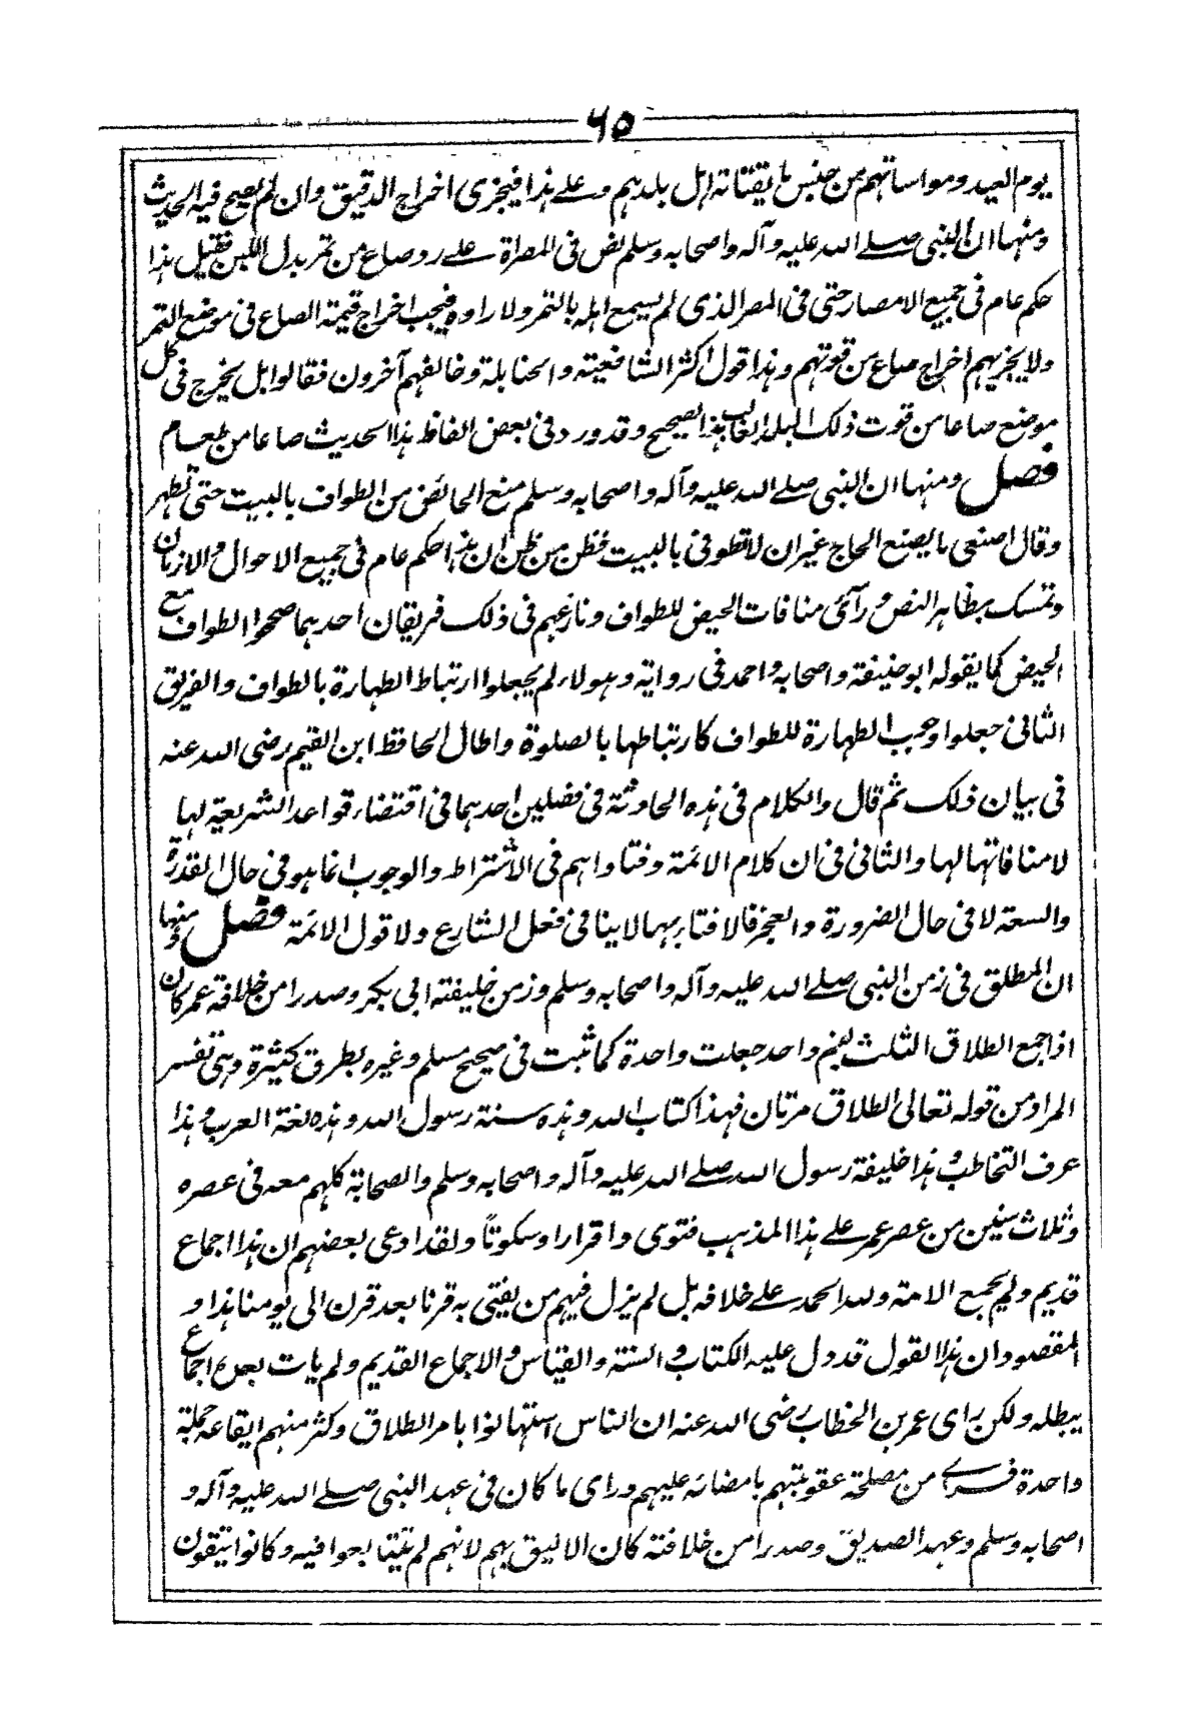 ٦٥
يوم العيد ومواساتهم من جنس ما يقتاته اهل بلدهم وعلى هذا فيجزى اخراج الدقيق وان لم يصح فيه الحديث
ومنها ان النبي صلى الله عليه وآله واصحابه وسلم نص فى المصراة على رد صاع من تمر بدل اللبن فقيل هذا
حكم عام فى جميع الامصار حتى فى المصر الذى لم يسمع اهله بالتمر ولا راوه فيجب اخراج قيمة الصاع فى موضع التمر
ولا يجزيهم اخراج صاع من قوتهم وهذا قول اكثر الشافعية والحنابلة وخالفهم آخرون فقالوا بل يخرج فى كل
موضع صاعا من قوت ذلك البلد الغالب هذا الصحيح وقد ورد فى بعض الفاظ هذا الحديث صاعا من طعام
فصل ومنها ان النبى صلى الله عليه وآله واصحابه وسلم منع الحائض من الطواف بالبيت حتى تطهر
وقال اصنعى ما يصنع الحاج غير ان لا تطوفى بالبيت فظن من ظن ان هذا حكم عام فى جميع الاحوال والازمان
وتمسك بظاهر النص ورآى منافات الحيض للطواف ونازعهم فى ذلك فريقان احدهما صححوا الطواف مع
الحيض كما يقوله ابو حنيفة واصحابه واحمد فى رواية وهولاء لم يجعلوا ارتباط الطهارة بالطواف والفريق
الثانى جعلوا وجوب الطهارة للطواف كارتباطها بالصلوة واطال الحافظ ابن القيم رضى الله عنه
فى بيان ذلك ثم قال والكلام فى هذه الحادثة فى فصلين احدهما فى اقتضاء قواعد الشريعة لها
لا منافاتها لها والثانى فى ان كلام الائمة وفتاواهم فى الاشتراط والوجوب انما هو فى حال القدرة
والسعة لا فى حال الضرورة والعجز فالافتاء بهما لا ينافى فعل الشارع ولا قول الائمة فصل ومنها
ان المطلق فى زمن النبى صلى الله عليه وآله واصحابه وسلم وزمن خليفته ابى بكر وصدرا من خلافة عمر كان
اذا جمع الطلاق الثلث بفم واحد جعلت واحدة كما ثبت فى صحيح مسلم وغيره بطرق كثيرة وهى تفسر
المراد من قوله تعالى الطلاق مرتان فهذا كتاب الله وهذه سنة رسول الله وهذه لغة العرب وهذا
عرف التخاطب وهذا خليفة رسول الله صلى الله عليه وآله واصحابه وسلم والصحابة كلهم معه فى عصره
وثلاث سنين من عصر عمر على هذا المذهب فتوى واقرارا وسكوتاً ولقد ادعى بعضهم ان هذا اجماع
قديم ولم يجمع الامة ولله الحمد على خلافه بل لم يزل فيهم من يفتى به قرنا بعد قرن الى يومنا هذا و
المقصود ان هذا القول قد دل عليه الكتاب والسنة والقياس والاجماع القديم ولم يات بعده اجماع
يبطله ولكن راى عمر بن الخطاب رضى الله عنه ان الناس استهانوا بامر الطلاق وكثر منهم ايقاعه جملة
واحدة فراى من مصلحة عقوبتهم بامضائه عليهم وراى ما كان فى عهد النبى صلى الله عليه وآله و
اصحابه وسلم وعهد الصديق وصدرا من خلافته كان الاليق بهم لانهم لم يتتابعوا فيه وكانوا يتقون